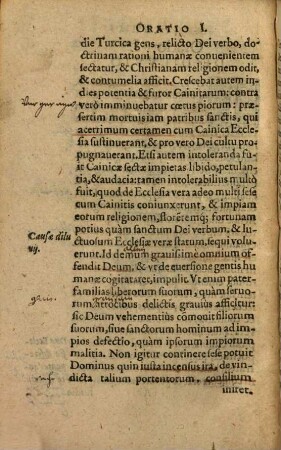 ORATIO I.
die Turcica gens, relicto Dei verbo, do-
ctrinam rationi humanæ conuenientem
sectatur, & Christianam religionem odit,
& contumelia afficit. Crescebat autem in
dies potentia & furor Cainitarum: contra
verò imminuebatur cœtus piorum: præ-
sertim mortuis iam patribus sanctis, qui
acerrimum certamen cum Cainica Eccle
sia sustinuerant, & pro vero Dei cultu pro
pugnauerant. Etsi autem intoleranda fu-
it Cainicæ sectæ impietas, libido, petulan-
tia, & audacia: tamen intolerabilius multo
fuit, quod de Ecclesia vera adeo multi sese
cum Cainitis coniunxerunt, & impiam
eorum religionem, florentemq; fortunam
potius quàm sanctum Dei verbum, & lu-
Causæ dilu
vij.
ctuosum Ecclesiæ veræ statum, sequi volu-
erunt. Id demum grauissimè omnium of-
fendit Deum, & vt de euersione gentis hu
manæ cogitaret, impulit. Vt enim pater-
familias liberorum suorum, quàm seruo-
rum, atrocibus delictis grauius afficitur:
sic Deum vehementiùs cōmouit filiorum
suorum, siue sanctorum hominum ad im-
pios defectio, quàm ipsorum impiorum
malitia. Non igitur continere sese potuit
Dominus quin iusta incensus ira, de vin-
dicta talium portentorum, consilium
iniret.